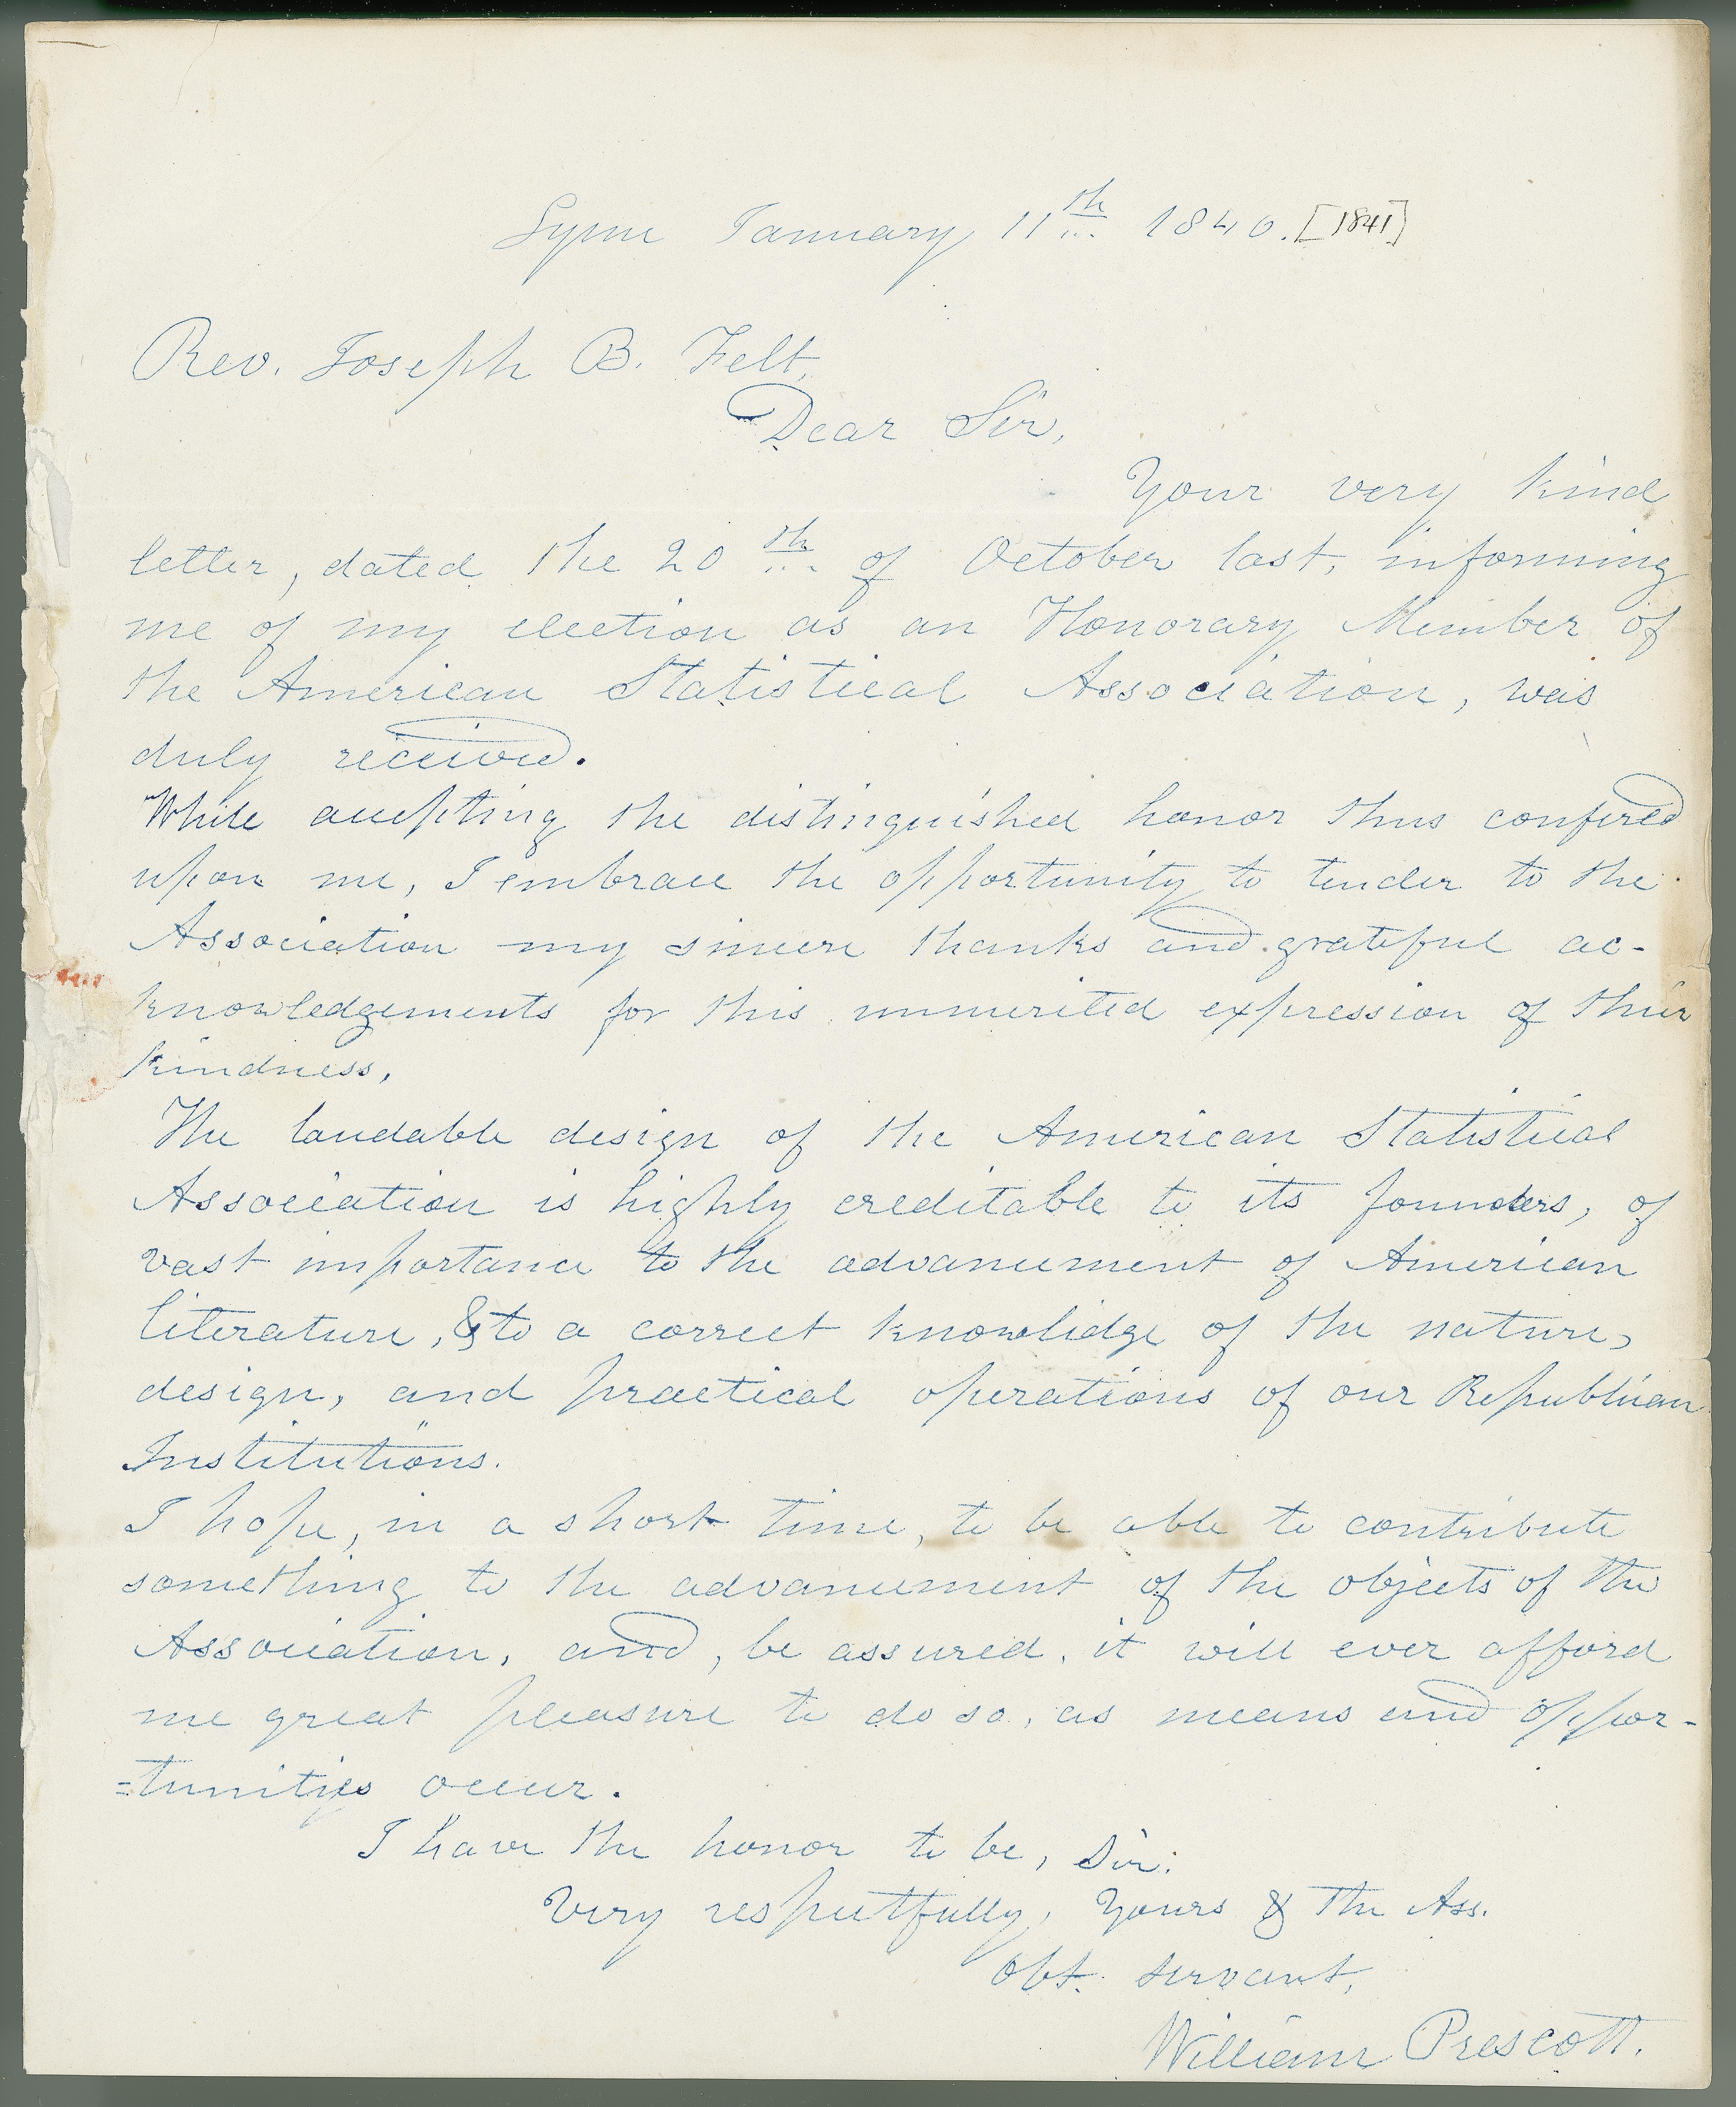 Lyme January 11th 1840. [1841]
Rev. Joseph B. Felt,
Dear Sir,
Your very kind
letter, dated the 20th of October last, informing
me of my election as an Honorary Member of
the American Statistical Association, was
duly received.
While accepting the distinguished honor thus confered
upon me, I embrace the opportunity to tender to the
Association my sincere thanks and grateful ac-
knowledgements for this unmerited expression of their
kindness.
The laudable design of the American Statistical
Association is highly creditable to its founders, of
vast importance to the advancement of American
literature, & to a correct knowlidge of the nature,
design, and practical operations of our Republican
Institutions.
I hope, in a short time, to be able to contribute
something to the advancement of the objects of the
Association, and, be assured, it will ever afford
me great pleasure to do so, as means and oppor-
=tunities occur.
I have the honor to be, Sir:
Very respectfully, Yours & the Ass.
Obt. servant,
William Prescott.